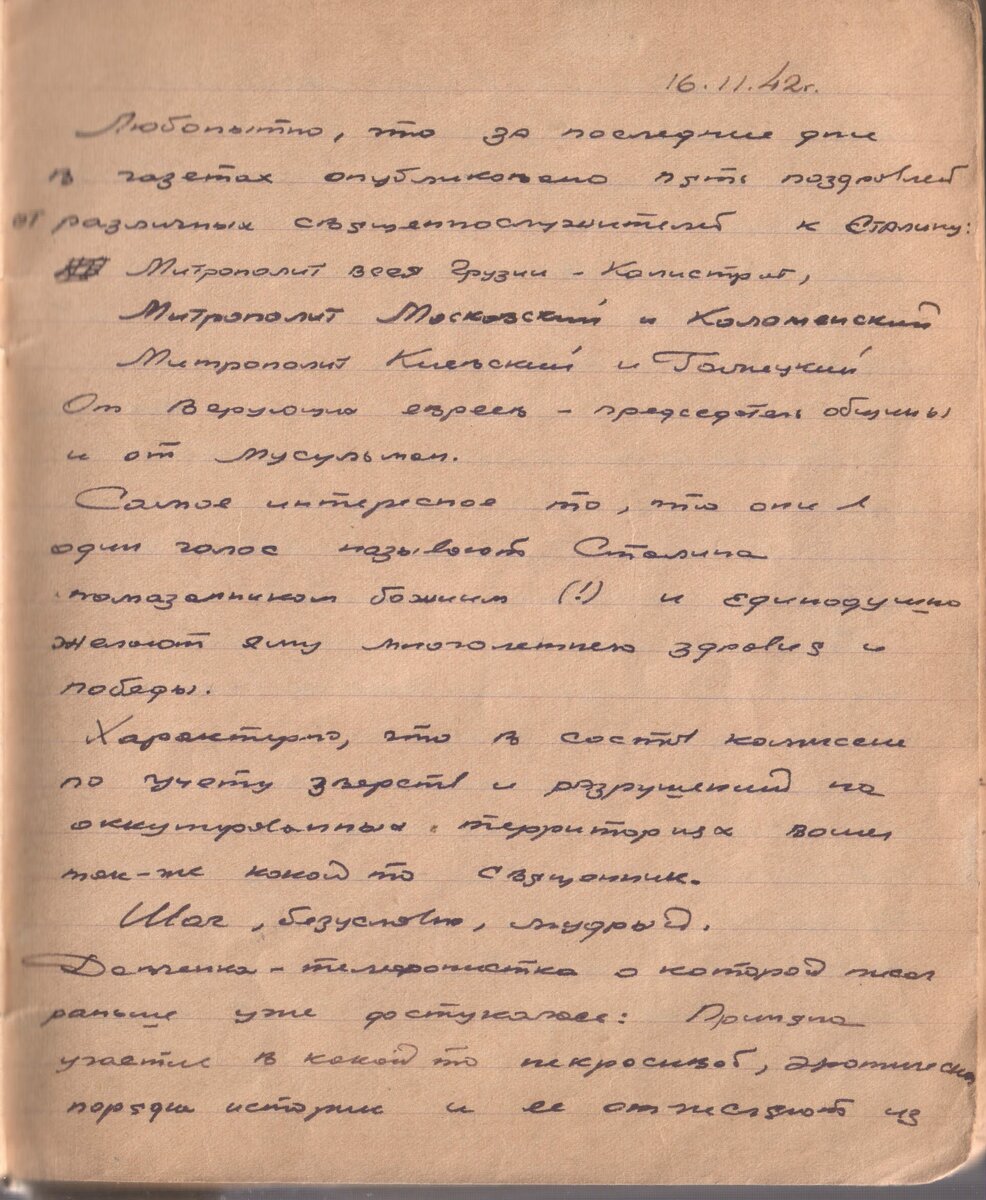 16.11.42г.
Любопытно, что за последние дни
в газетах опубликовано пять поздравлений
от различных священнослужителей к Сталину:
Митрополит всея Грузии - Калистрат,
Митрополит Московский и Коломенский
Митрополит Киевский и Галицкий
От верующих евреев - председатель общины
и от мусульман.
Самое интересное то, что они в
один голос называют Сталина
помазанником божиим (!) и единодушно
желают ему многолетнего здравия и
победы.
Характерно, что в состав комиссии
по учету зверств и разрушений на
оккупированных территориях вошел
так-же какой то священник.
Шаг, безусловно, мудрый.
телефонистка о которой писал
раньше уже достукалась: Приняла
участие в какой то некрасивой, эротического
порядка истории и ее отчисляют из